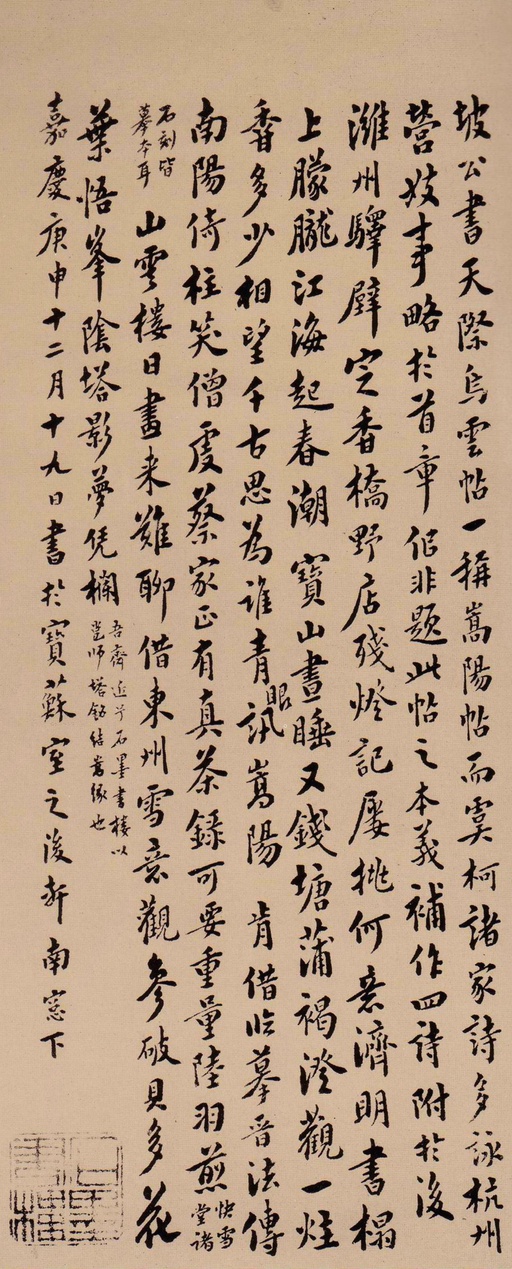 坡公書天際烏雲帖一稱嵩陽帖而虞柯諸家詩多詠杭州
營妓事略於首章似非題此帖之本義補作四詩附於後
濰州驛壁定香橋野店殘燈記屢挑何意濟明書榻
上朦朧江海起春潮 寶山晝睡又錢塘蒲褐澄觀一炷
香多少相望千古思為誰青眼訊嵩陽 肯借臨摹晉法傳
南陽倚柱笑僧虔蔡家正有真茶錄可要重量陸羽煎快雪堂諸
石刻皆摹本耳 山雲樓日畫來難聊借東州雪意觀參破貝多花
葉悟峯陰塔影夢凭欄吾齋近得石墨書樓以岜師塔銘結嵩緣也
嘉慶庚申十二月十九日書於寶蘇室之後軒南窓下